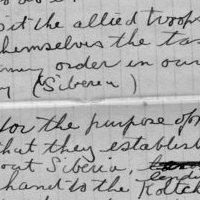 sit the allied troops
themselves the tas
order in our
(Siberia)
for the purpose of
that they establish
out Siberia,
hand to the Koltch